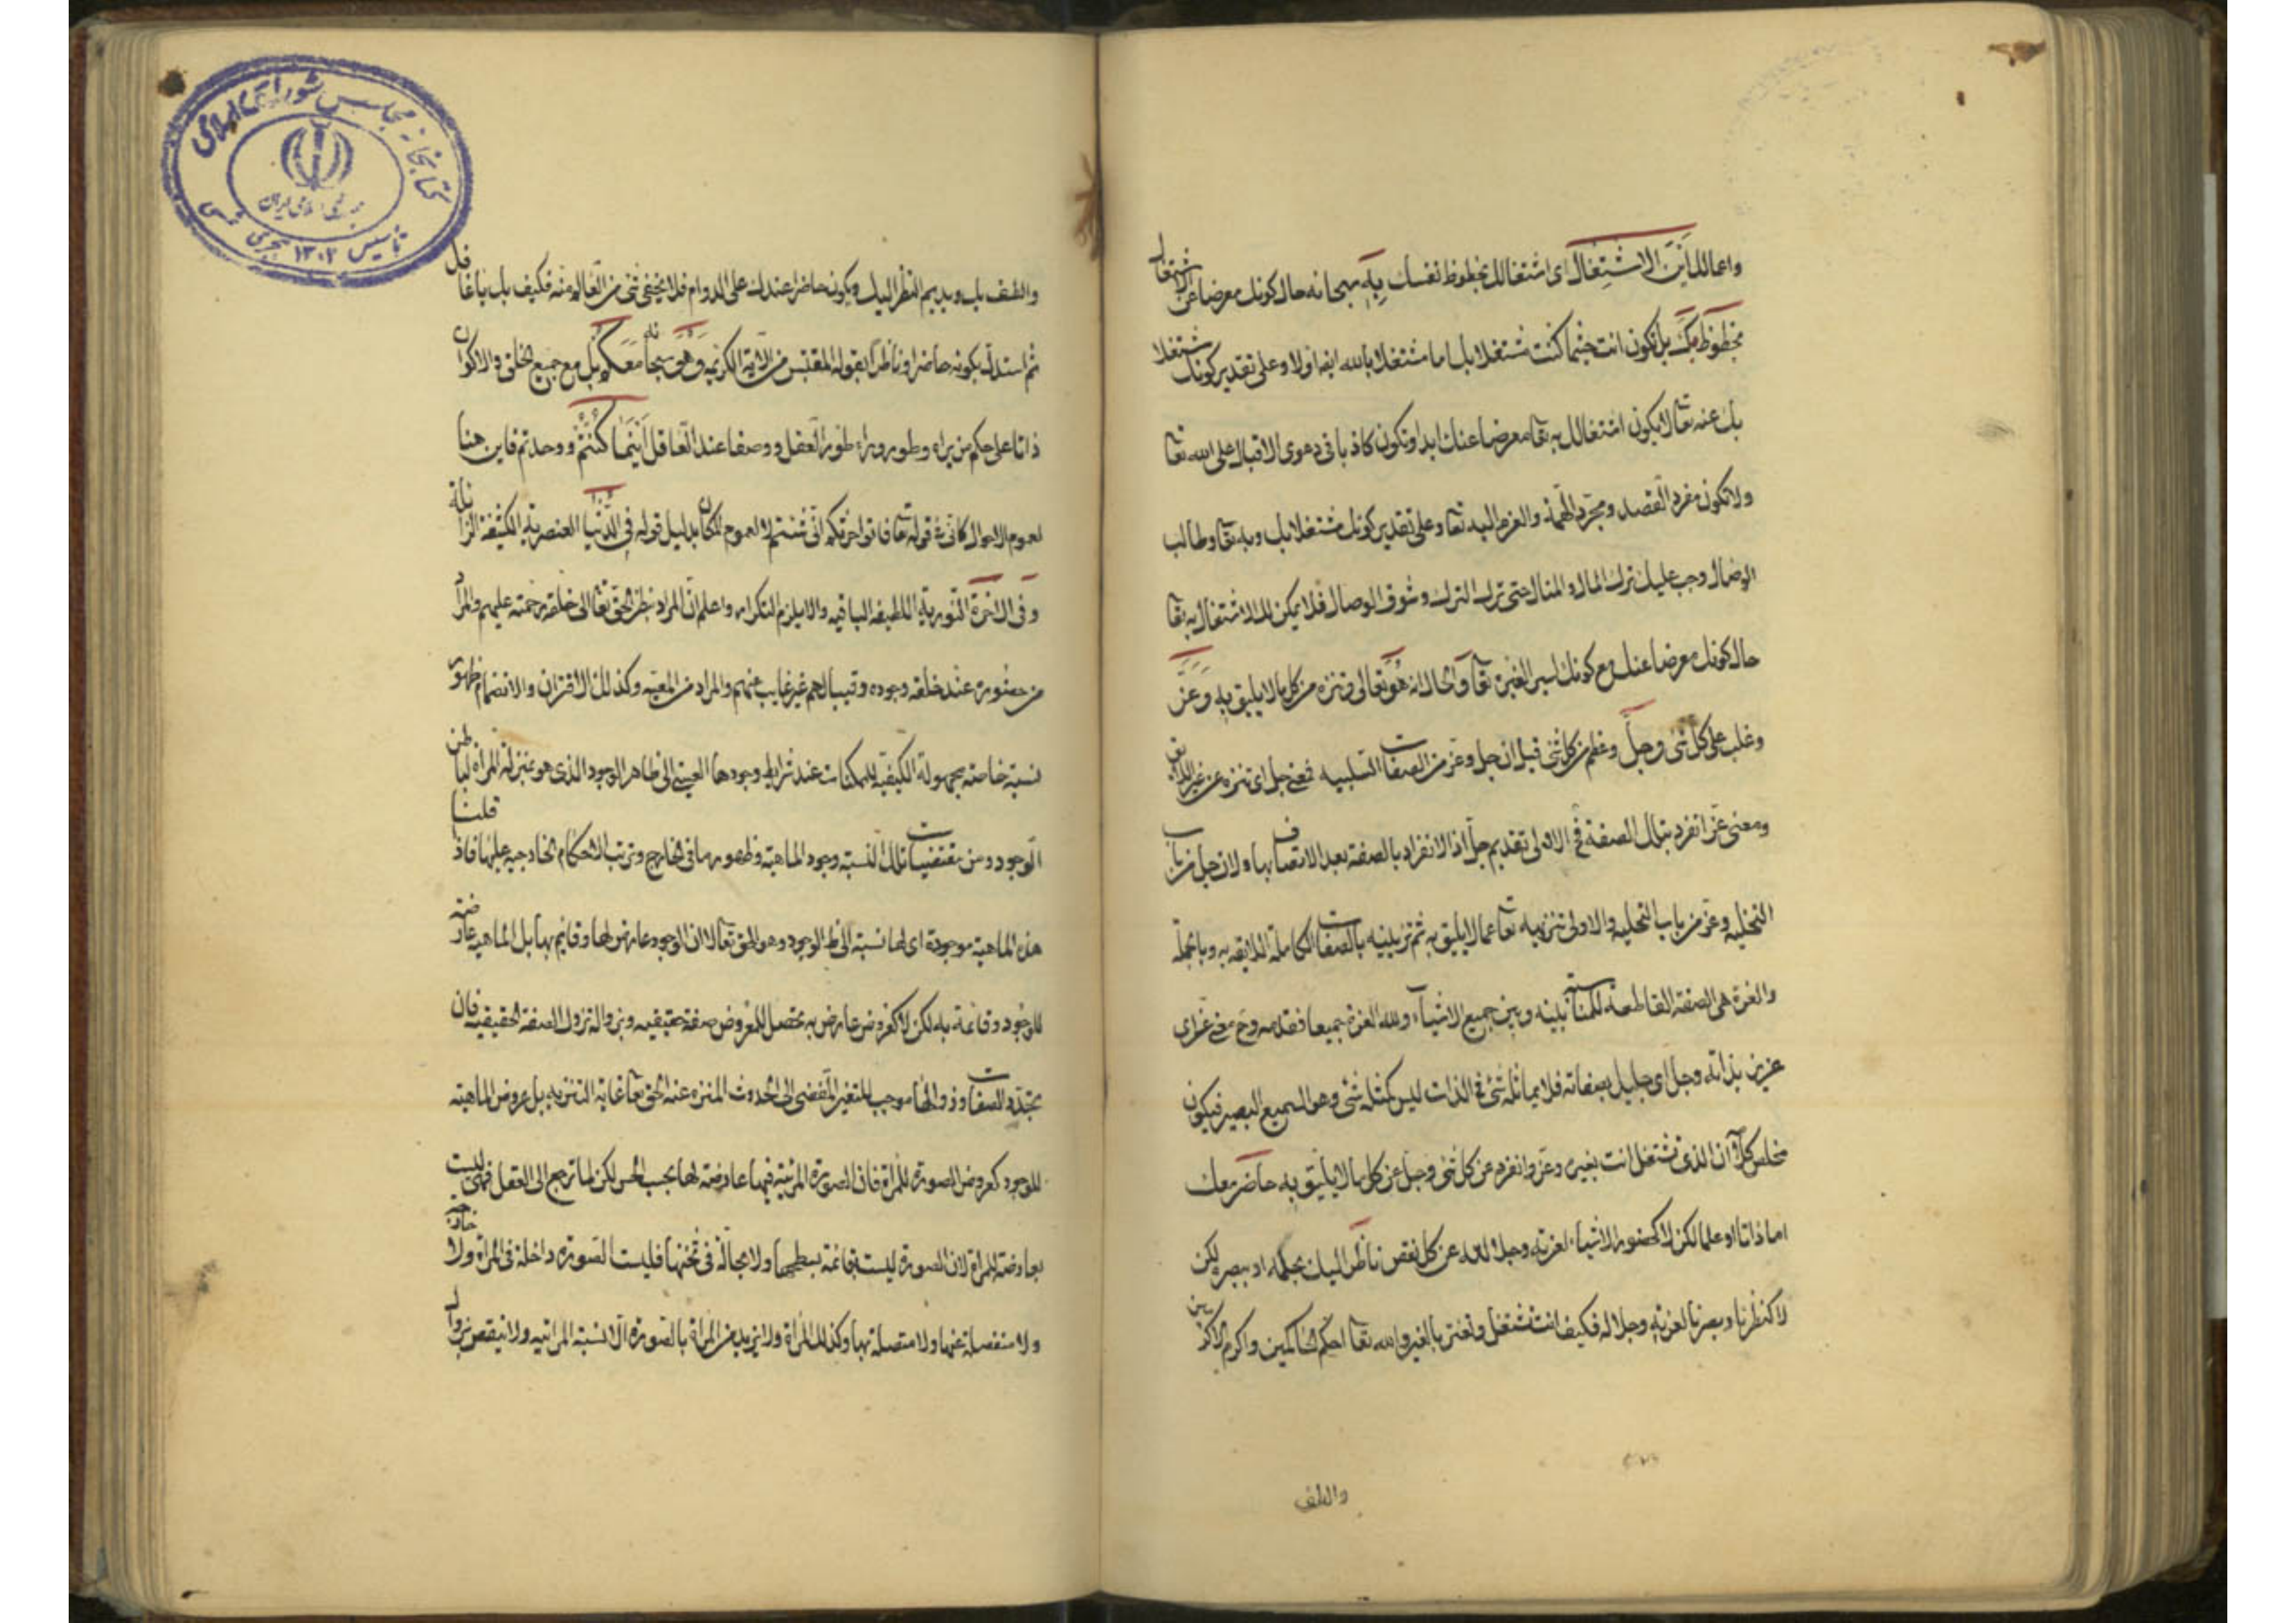 واعمالك اَيْنَ الاشتِغال اى اشتغالك بحظوظ نفسك بِهِ سبحانه حال كونك معرضا عن اشتغال
بحظوظ بك بل تكون انت حيثما كنت مشتغلا بك اما مشتغلا بالله ايضا اولا وعلى تقدير كونك مشتغلا
بك عنه تعا لا يكون اشتغالك به تعا معرضا عنك ابدا وتكون كاذبا فى دعوى الاقبال على الله تعا
ولا تكون مفرد القصد ومجرد الهمة والعزم اليه تعا وعلى تقدير كونك مشتغلا بك وبه تعا وطالب
الوصال وجب عليك ترك المال والمنال حتى ترك الترك وشوق الوصال فلا يمكن لك الاشتغال به تعا
حال كونك معرضا عنك مع كونك اسير الغيره تعا وَالحال انه هُوَ تعالى وتنزه من كل ما لا يليق به وَعَزَّ
وغلب على كل شئ وجلّ وعظم من كل شئ قيل ان جل وعز من الصفات السلبيه فمعنى جل اى تنزه عن غير اللائق
ومعنى عز انفرد بتلك الصفة فالاولى تقديم جل اذ الانفراد بالصفة بعد الاتصاف بها ولان جل من باب
التخليه وعز من باب التحليه والاولى تنزيهه تعا عما لا يليق به ثم تزيينه بالصفات الكاملة اللايقه به وبالجملة
والعزة هى الصفة القاطعة للمناسبة بينه وبين جميع الاشياء ولله العزة جميعا فقدمه وح معنى عز اى
عزيز بذاته وجل اى جليل بصفاته فلا يماثله شئ فى الذات ليس كمثله شئ وهو السميع البصير فيكون
مخلص كلامه ان الذى تشتغل انت بغيره وعز وانفرد عن كل شئ وجل عن كل ما لا يليق به حاضر معك
اما ذاتا او علما لكن لا كحضور الاشياء لعزته وجلاله عن كل نقص ناظر اليك بحكمه او ببصره لكن
لا كنظرنا وبصرنا لعزته وجلاله فكيف انت تشتغل وتغتر بالغير والله تعا احكم الحاكمين واكرم الاكرمين
واللطف
واللطف بك ويديم النظر اليك ويكون حاضرا عندك على الدوام فلا يخفى شئ من افعالك منه فكيف بك يا غافل
ثم استدل بكونه حاضرا وناظرا بقوله المقتبس من الاية الكريمه وَهُوَ سبحانه مَعَكُم بل مع جميع الخلق والاكوان
ذاتا على حكم من يراه وطوره وراء طور العقل ووصفا عند العاقل اَيْنَمَا كُنْتُمْ ووجدتم فاين هنا
لعموم الاحوال كانى فى قوله تعا فاتوا حرثكم انى شئتم لا لعموم المكان بدليل قوله فى الدُّنْيا العنصرية الكثيفة الزائلة
وَفى الاخرة النّورية اللطيفه الباقيه والا يلزم التكرار واعلم ان المراد من نظر الحق تعا الى خلقه رحمته عليهم والمراد
من حضوره عند خلقه وجوده وقيب لهم غير غايب عنهم والمراد من المعية وكذا لك الاقتران والانضمام ظهور
نسبة خاصة مجهولة الكيفيه للممكنات عند شرايط وجودها العينى الى ظاهر الوجود الذى هو بمنزلة المراة لباطن
الوجود ومن مقتضيات تلك النسبة وجود الماهية وظهورها فى الخارج وترتب الاحكام الخارجيه عليها فاذا قلنا
هذه الماهية موجودة اى لها نسبة الى ظ الوجود وهو الحق تعا لا ان الوجود عارض لها وقايم بها بل الماهيه عارضة
للوجود وقائمة به لكن لا كعروض عارض به تحصل للمعروض صفة حقيقيه وبزواله تزول الصفة الحقيقيه فان
تجدد الصفات وزوالها موجب للتغير المفضى الى الحدوث المنزه عنه الحق تعا غاية التنزيه بل عروض الماهية
للوجود كعروض الصورة للمراة فان الصورة المرئية فيها عارضة لها بحسب الحس لكن لما ترجع الى العقل فهى ليست
بعارضة للمراة لان الصورة ليست بقائمة بسطحها ولا بحالّة فى ثخنها فليست الصورة داخلة فى المراة ولا خارجة
ولا منفصلة عنها ولا متصلة بها وكذلك المراة ولا يزيد من المراة بالصورة الا نسبة المراتيه ولا ينقص بزوال
كتابخانه مجلس شوراى اسلامى
جمهورى اسلامى ايران
تأسيس ١٣٠٢ هجرى شمسى